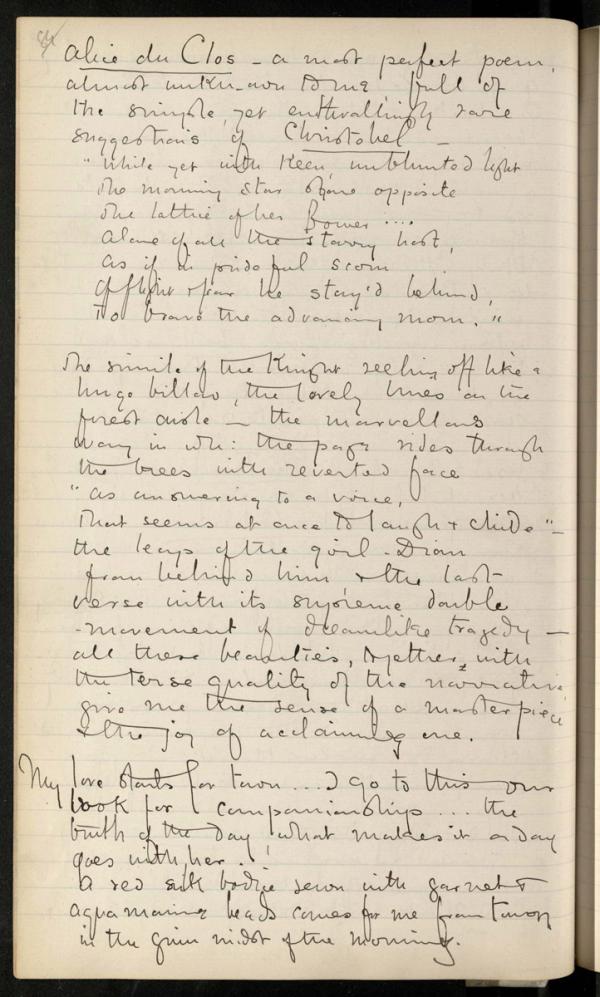 84
Alice du Clos – a most perfect poem,
almost unknown to me, full of
the simple, yet enthrallingly rare
suggestions of Christabel –
"While yet with keen unblunted light
The morning star shone opposite
The lattice of her Bower ....
Alone of all the starry host,
As if in prideful scorn
Of flight & fear he stay'd behind,
To brave the advancing morn."
The simile of the Knight reeling off like a
huge billow, the lovely lines on the
forest aisle – the marvellous
way in wh: the page rides through
the trees with reverted face
"as answering to a voice,
That seems at once to laugh & chide" –
the leap of the girl-Dian
from behind him & the last
verse with its supreme double
-movement of dreamlike tragedy –
all these beauties, together with
the terse quality of the narrative,
give me the sense of a masterpiece
& the joy of acclaiming one.
My love starts for town ... I go to this our
book for companionship ... the
truth of the day, what makes it a day
goes with her.
A red silk bodice sewn with garnet &
aquamarine beads comes for me from town
in the grim midst of the morning.